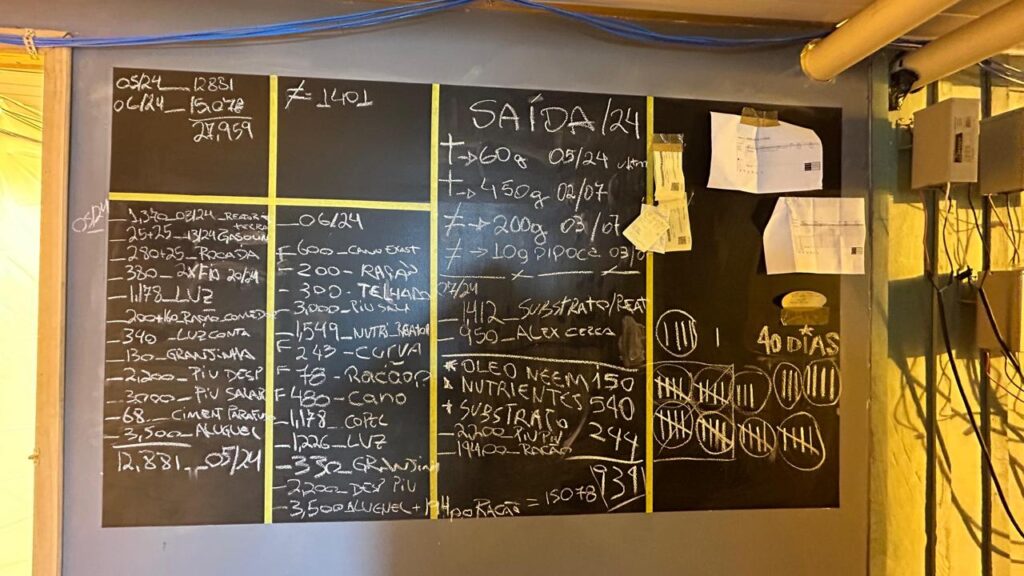 05/24_12881
06/24_15.078
27,959
≠ 1401
05/24
_ 1,340_03/24_
_ 25+25_13/24 GASOLINA
_ 280+25_ROCADA
_ 380_ 20/24
_ 1,178_LUZ
_ 340_LUZ CONTA
_ 130_GRANJINHA
_ 2,200_PIU DESP
_ 3000_PIU SALAR
_ 68_CIMENT
_ 3,500_ALUGUEL
12,881_05/24
_06/24
F 600_CANO EXAST
F 200_RAÇÃO
_ 300_TELHADO
_ 3,000_PIU SALA
_ 1,549_NUTRI.
F 243_CURVA
F 78_RACÇÃO?
F 480_CANO
_ 1,178_COPEL
_ 1,226_LUZ
_ 330_GRANJIN
_ 2,200_DESP PIU
_ 3,500 ALUGUEL + RAÇÃO = 15078
SAÍDA/24
† → 60g 05/24
† → 450g 02/07
≠ → 200g 03/07
≠ → LOG PIPOCA 03/0
07/24
_ 1412_SUBSTRATO/
_ 950_ALEX CERCA
* OLEO NEEM 150
* NUTRIENTES 540
* SUBSTRATO 244
_ 2,200 PIU
_ RAÇÃO
934
1
40 DIAS